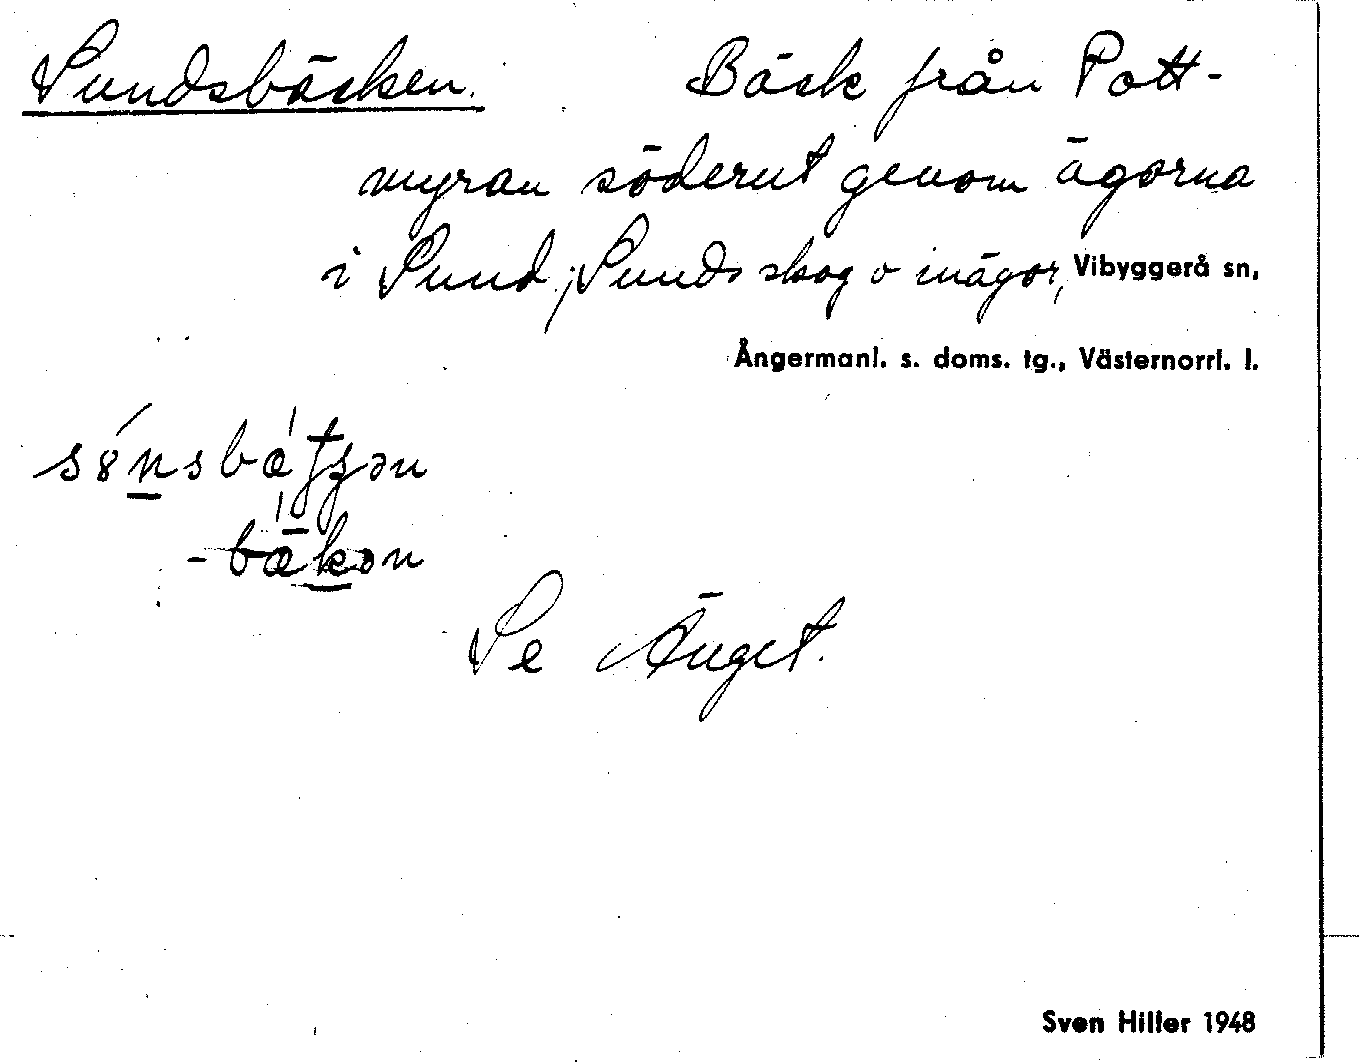 Sundsbäcken. Bäck från Pott-
myran söderut genom ägorna
i Sund; Sunds skog o inägor, Vibyggerå sn,
Ångermanl. s. doms. tg., Västernorrl. l.
-bäkən
Se Änget.
Sven Hiller 1948